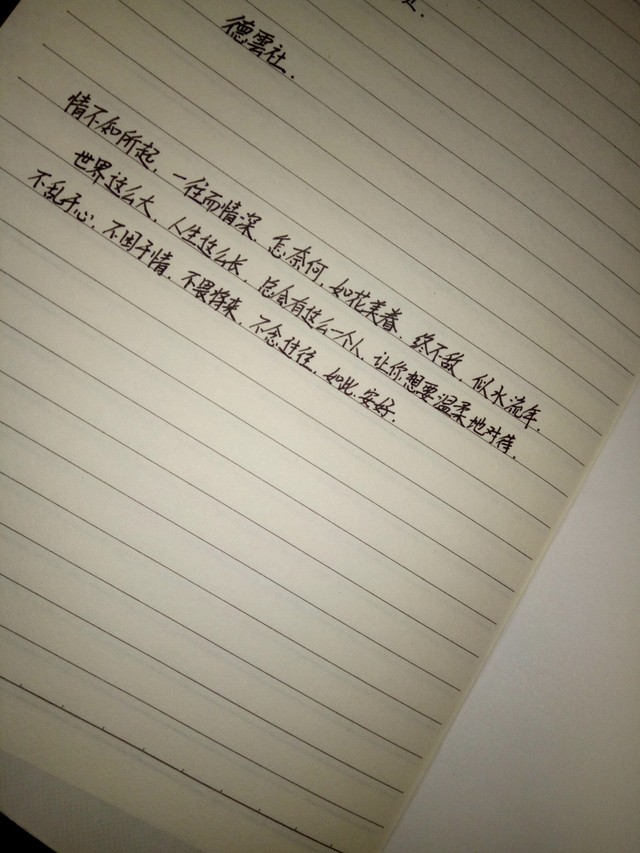 德雲社.
情不知所起，一往而情深，怎奈何，如花美眷，终不敌，似水流年.
世界这么大，人生这么长，总会有这么一个人，让你想要温柔地对待.
不乱于心，不困于情，不畏将来，不念过往，如此，安好.